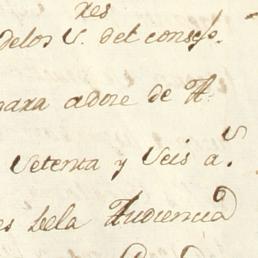 res
delos V. del consejo.
para adore de A.
Vetenta y Veis a.s
es Dela Audiencia